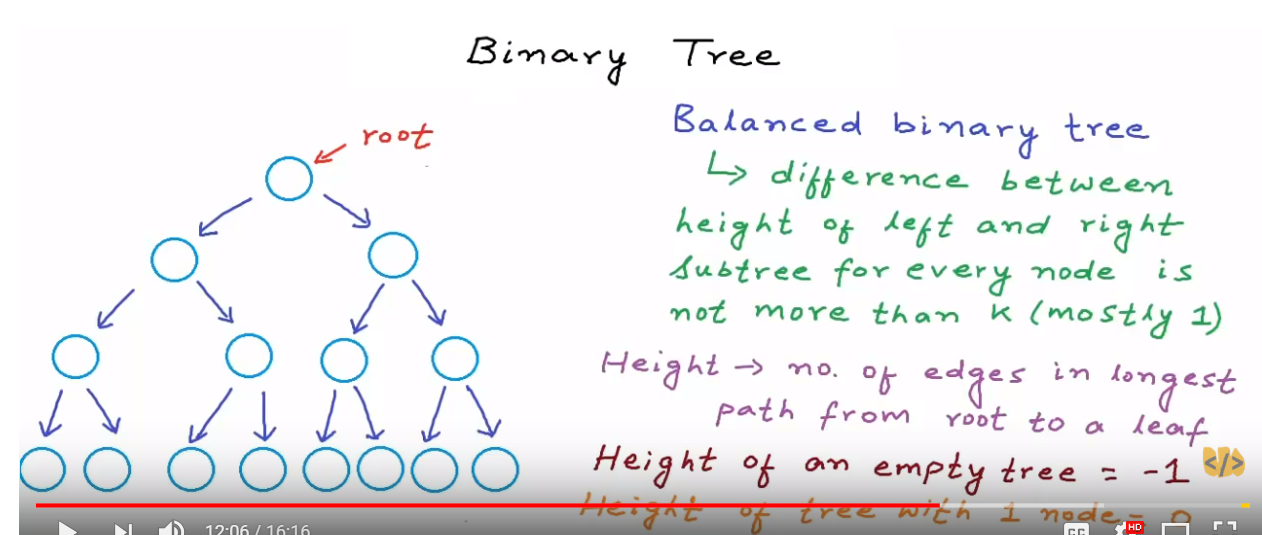 Binary Tree
root
Balanced binary tree
↳ difference between
height of left and right
subtree for every node is
not more than k (mostly 1)
Height → no. of edges in longest
path from root to a leaf
Height of an empty tree = -1
</>
Height of tree with 1 node = 0
12:06 / 16:16
CC
HD